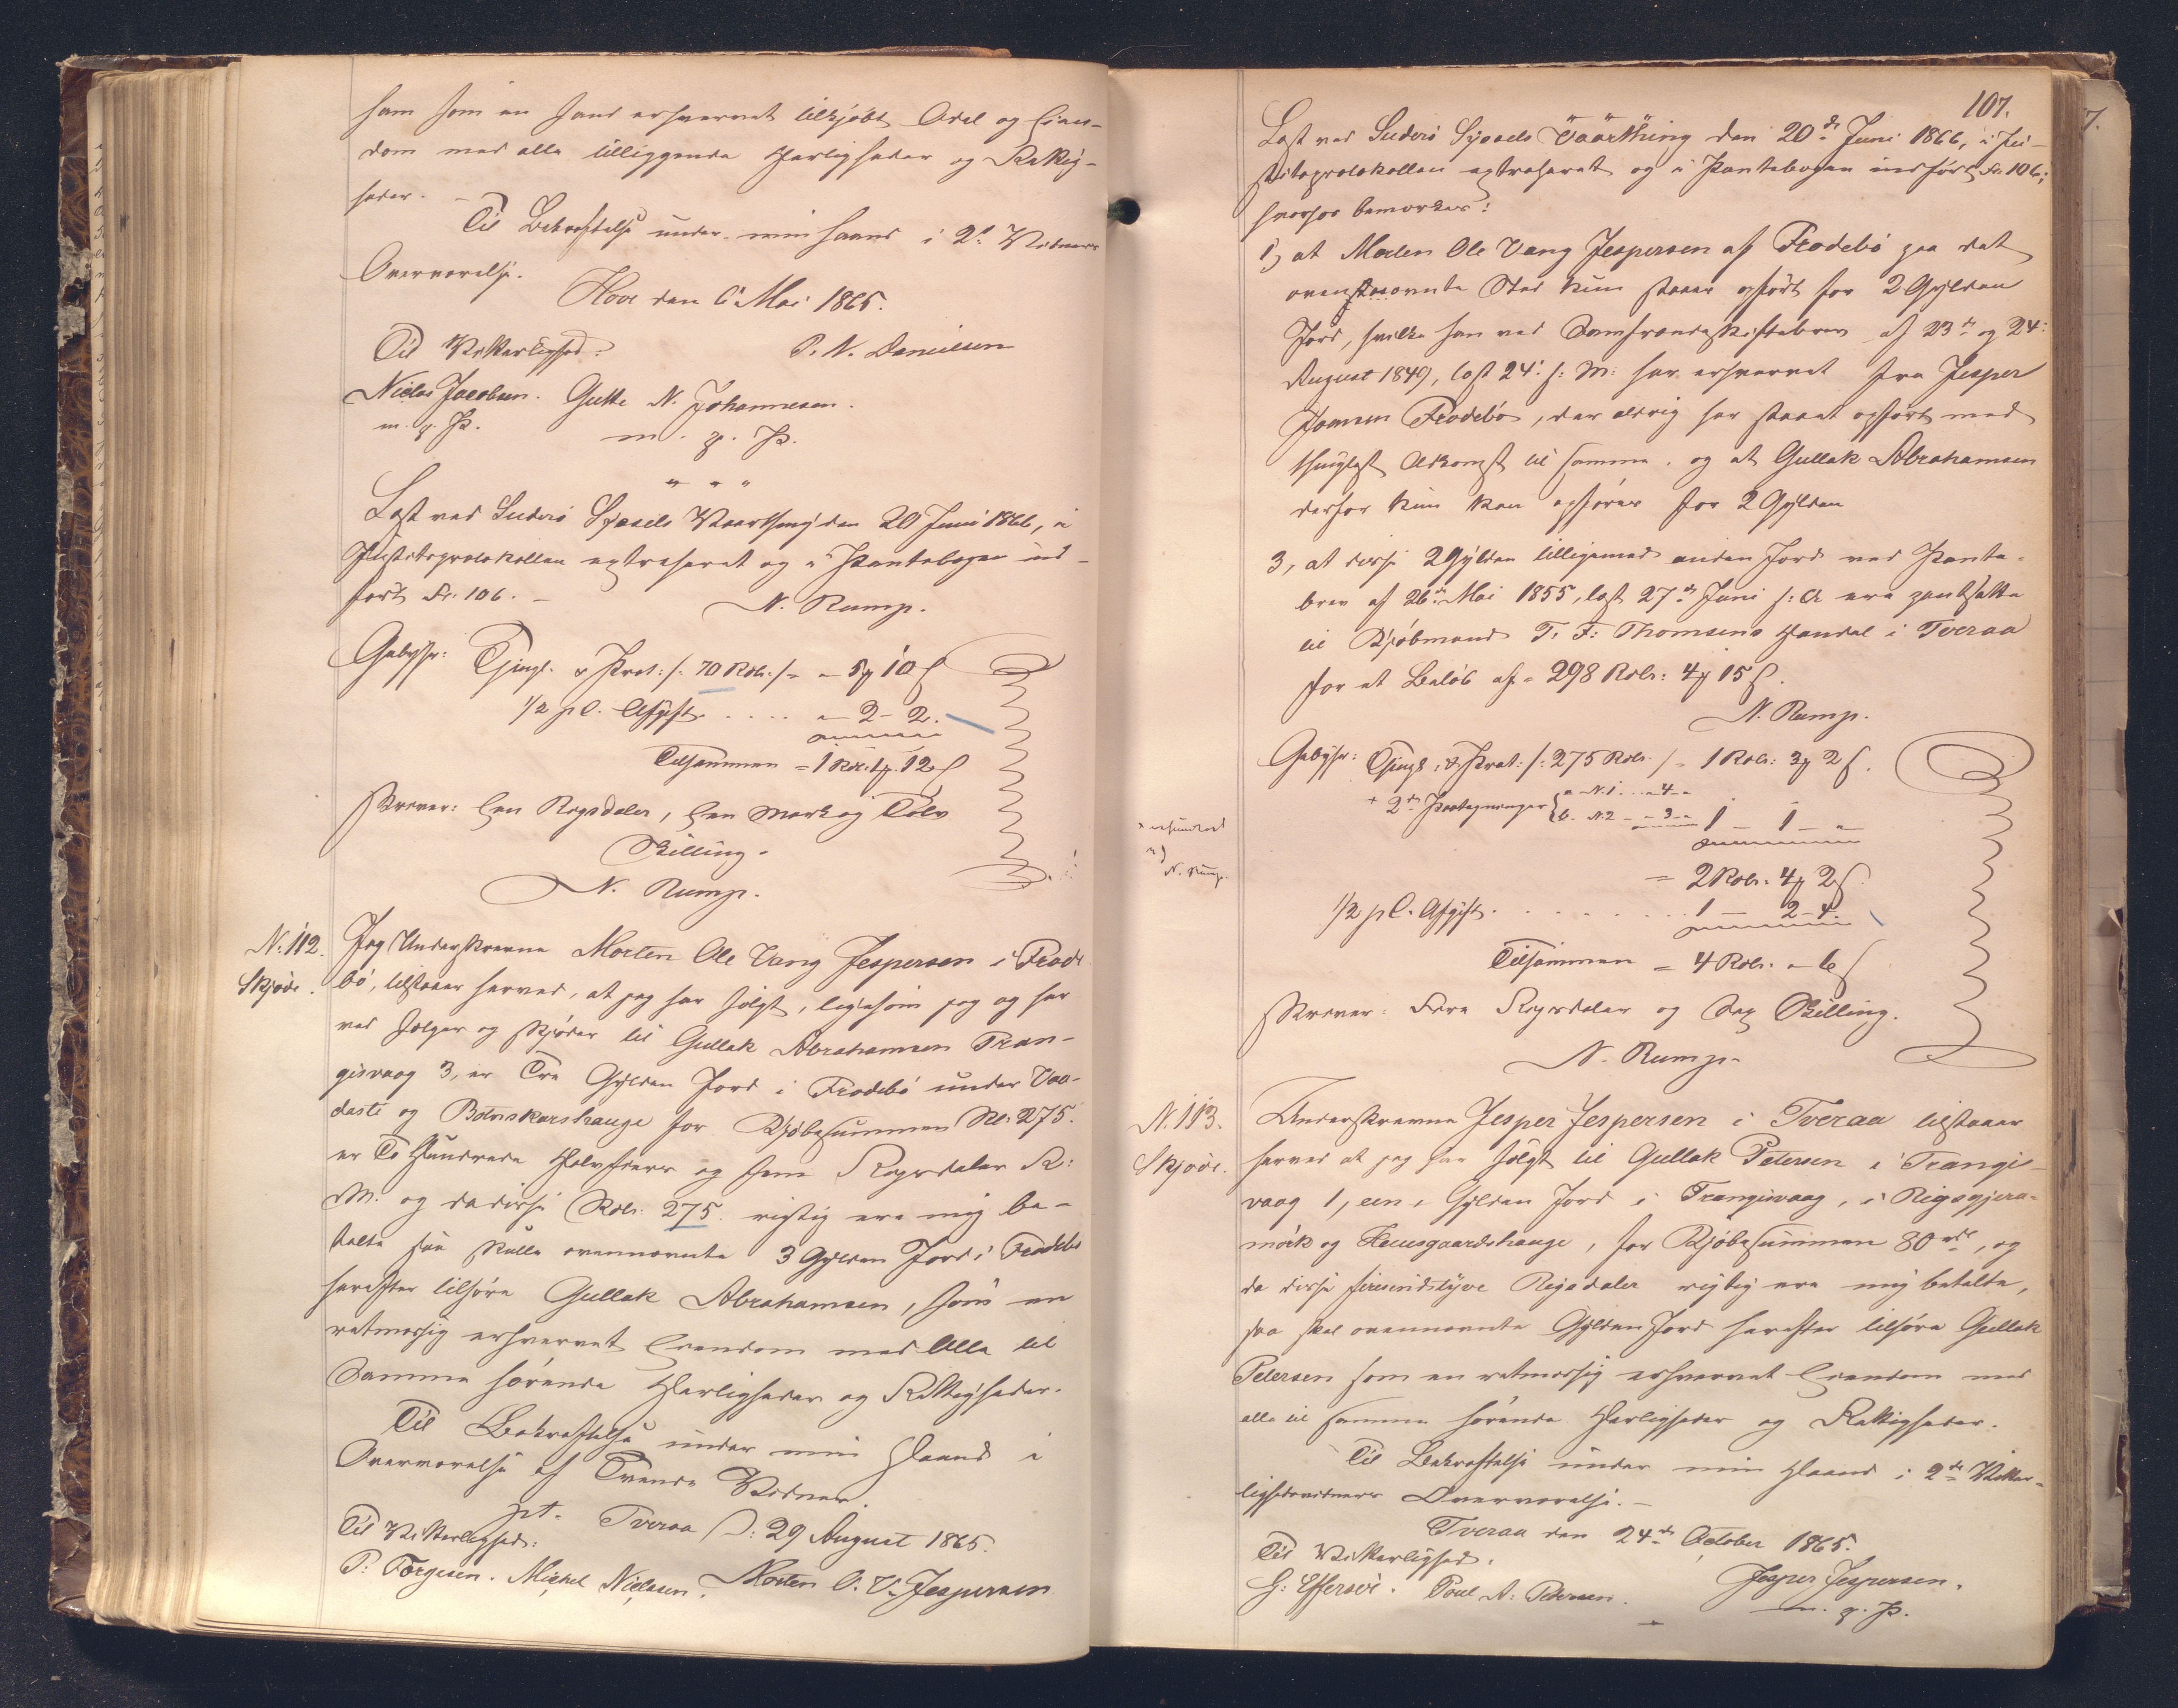 ham som en sand erhvervet tilkjøbt Odel og Eien-
dom med alle tilliggende Herligheder og Rettig-
heder. –
Til Bekræftelse under min Haand i 2de Vidners
Overværelse.
Hove den 6 Mai 1865.
Til Vitterlighed: P. N. Danielsen
Niclas Jacobsen. Gutte N. Johannesen.
m. p. P. m. p. P.
" " "
Læst ved Suderø Syssels Vaarthing den 20 Juni 1866, i
Justitsprotokollen extraheret og i Pantebogen ind-
ført Fo. 106. – N. Rump.
Gebyhr: Tingl. & Prot: /: 70 Rdlr. :/ = " – 5 10 ß
1/2 pC. Afgift . . . . " – 2 – 2.
Tilsammen = 1 Rdl. 1 12 ß
skriver: Een Rigsdaler, Een Mark og Tolv
Skilling.
N. Rump.
N. 112. Jeg Underskrevne Morten Ole Vang Jespersen i Frode-
Skjøde. bø, tilstaaer herved, at jeg har solgt, ligesom jeg og her
ved sælger og skjøder til Gullak Abrahamsen Tran-
gisvaag 3, er Tre Gylden Jord i Frodebø under
og for Kjøbesummen Rd: 275.
er To Hundrede Halvfjerds og fem Rigsdaler R:
M. og da disse Rdlr. 275. rigtig ere mig be-
talte saa skulle ovennævnte 3 Gylden Jord i Frodebø
herefter tilhøre Gullak Abrahamsen, som en
retmæssig erhvervet Eiendom med Alle til
Samme hørende Herligheder og Rettigheder.
Til Bekræftelse under min Haand i
Overværelse af Tvende Vidner.
pt. Tveraa D: 29 August 1865.
Til Vitterlighed:
P. Torgesen. Michel Nielsen. Morten O. V. Jespersen
107.
Læst ved Suderø Syssels Vaarthing den 20de Juni 1866, i Ju-
stitsprotokollen extraheret og i Pantebogen indført Fo. 106;
hvorhos bemærkes:
1, at Morten Ole Vang Jespersen af Frodebø paa det
ovennævnte Sted kun staaer opført for 2 Gylden
Jord, hvilke han ved Samfrændeskiftebrev af 23de og 24:
August 1849, læst 24: s: M: har erhvervet fra Jesper
Joensen Frodebø, der aldrig har staaet opført med
thinglæst Adkomst til samme, og at Gullak Abrahamsen
derfor kun kan opføres for 2 Gylden
3, at disse 2 Gylden tilligemed anden Jord ved Pante-
brev af 26de Mai 1855, læst 27de Juni s: A ere pantsatte
til Kjøbmand T. F: Thomsens Handel i Tveraa
for et Beløb af = 298 Rdlr: 4 15 ß.
N. Rump.
Gebyhr: Tingl: & Prot: /: 275 Rdlr. :/ = 1 Rdlr: 3 2 ß.
+ 2de Paategninger { a. N. 1 . . . " 4 – "
b. N. 2 – " – 3 – " 1 – 1 – "
= 2 Rdlr. 4 2 ß.
1/2 pC. Afgift . . . . . . . . . . 1 – 2 – 4.
Tilsammen = 4 Rdlr. " 6 ß
skriver: Fire Rigsdaler og Sex Skilling.
N. Rump.
N. Rump.
N. 113. Underskrevne Jesper Jespersen i Tveraa tilstaaer
Skjøde. herved at jeg har solgt til Gullak Petersen i Trangis-
vaag 1, een, Gylden Jord i Trangisvaag, i Rigsgjera-
mørk og Heuesgaardshauge, for Kjøbesummen 80 rdl, og
da disse firesindstyve Rigsdaler rigtig ere mig betalte,
saa skal ovennævnte Gylden Jord herefter tilhøre Gullak
Petersen som en retmæssig erhvervet Eiendom med
alle til samme hørende Herligheder og Rettigheder.
Til Bekræftelse under min Haand i 2de Vitter-
lighedsvidners Overværelse. –
Tveraa den 24de October 1865.
Til Vitterlighed. Jesper Jespersen.
G: Effersøe. Poul A. Petersen. m. p. P.